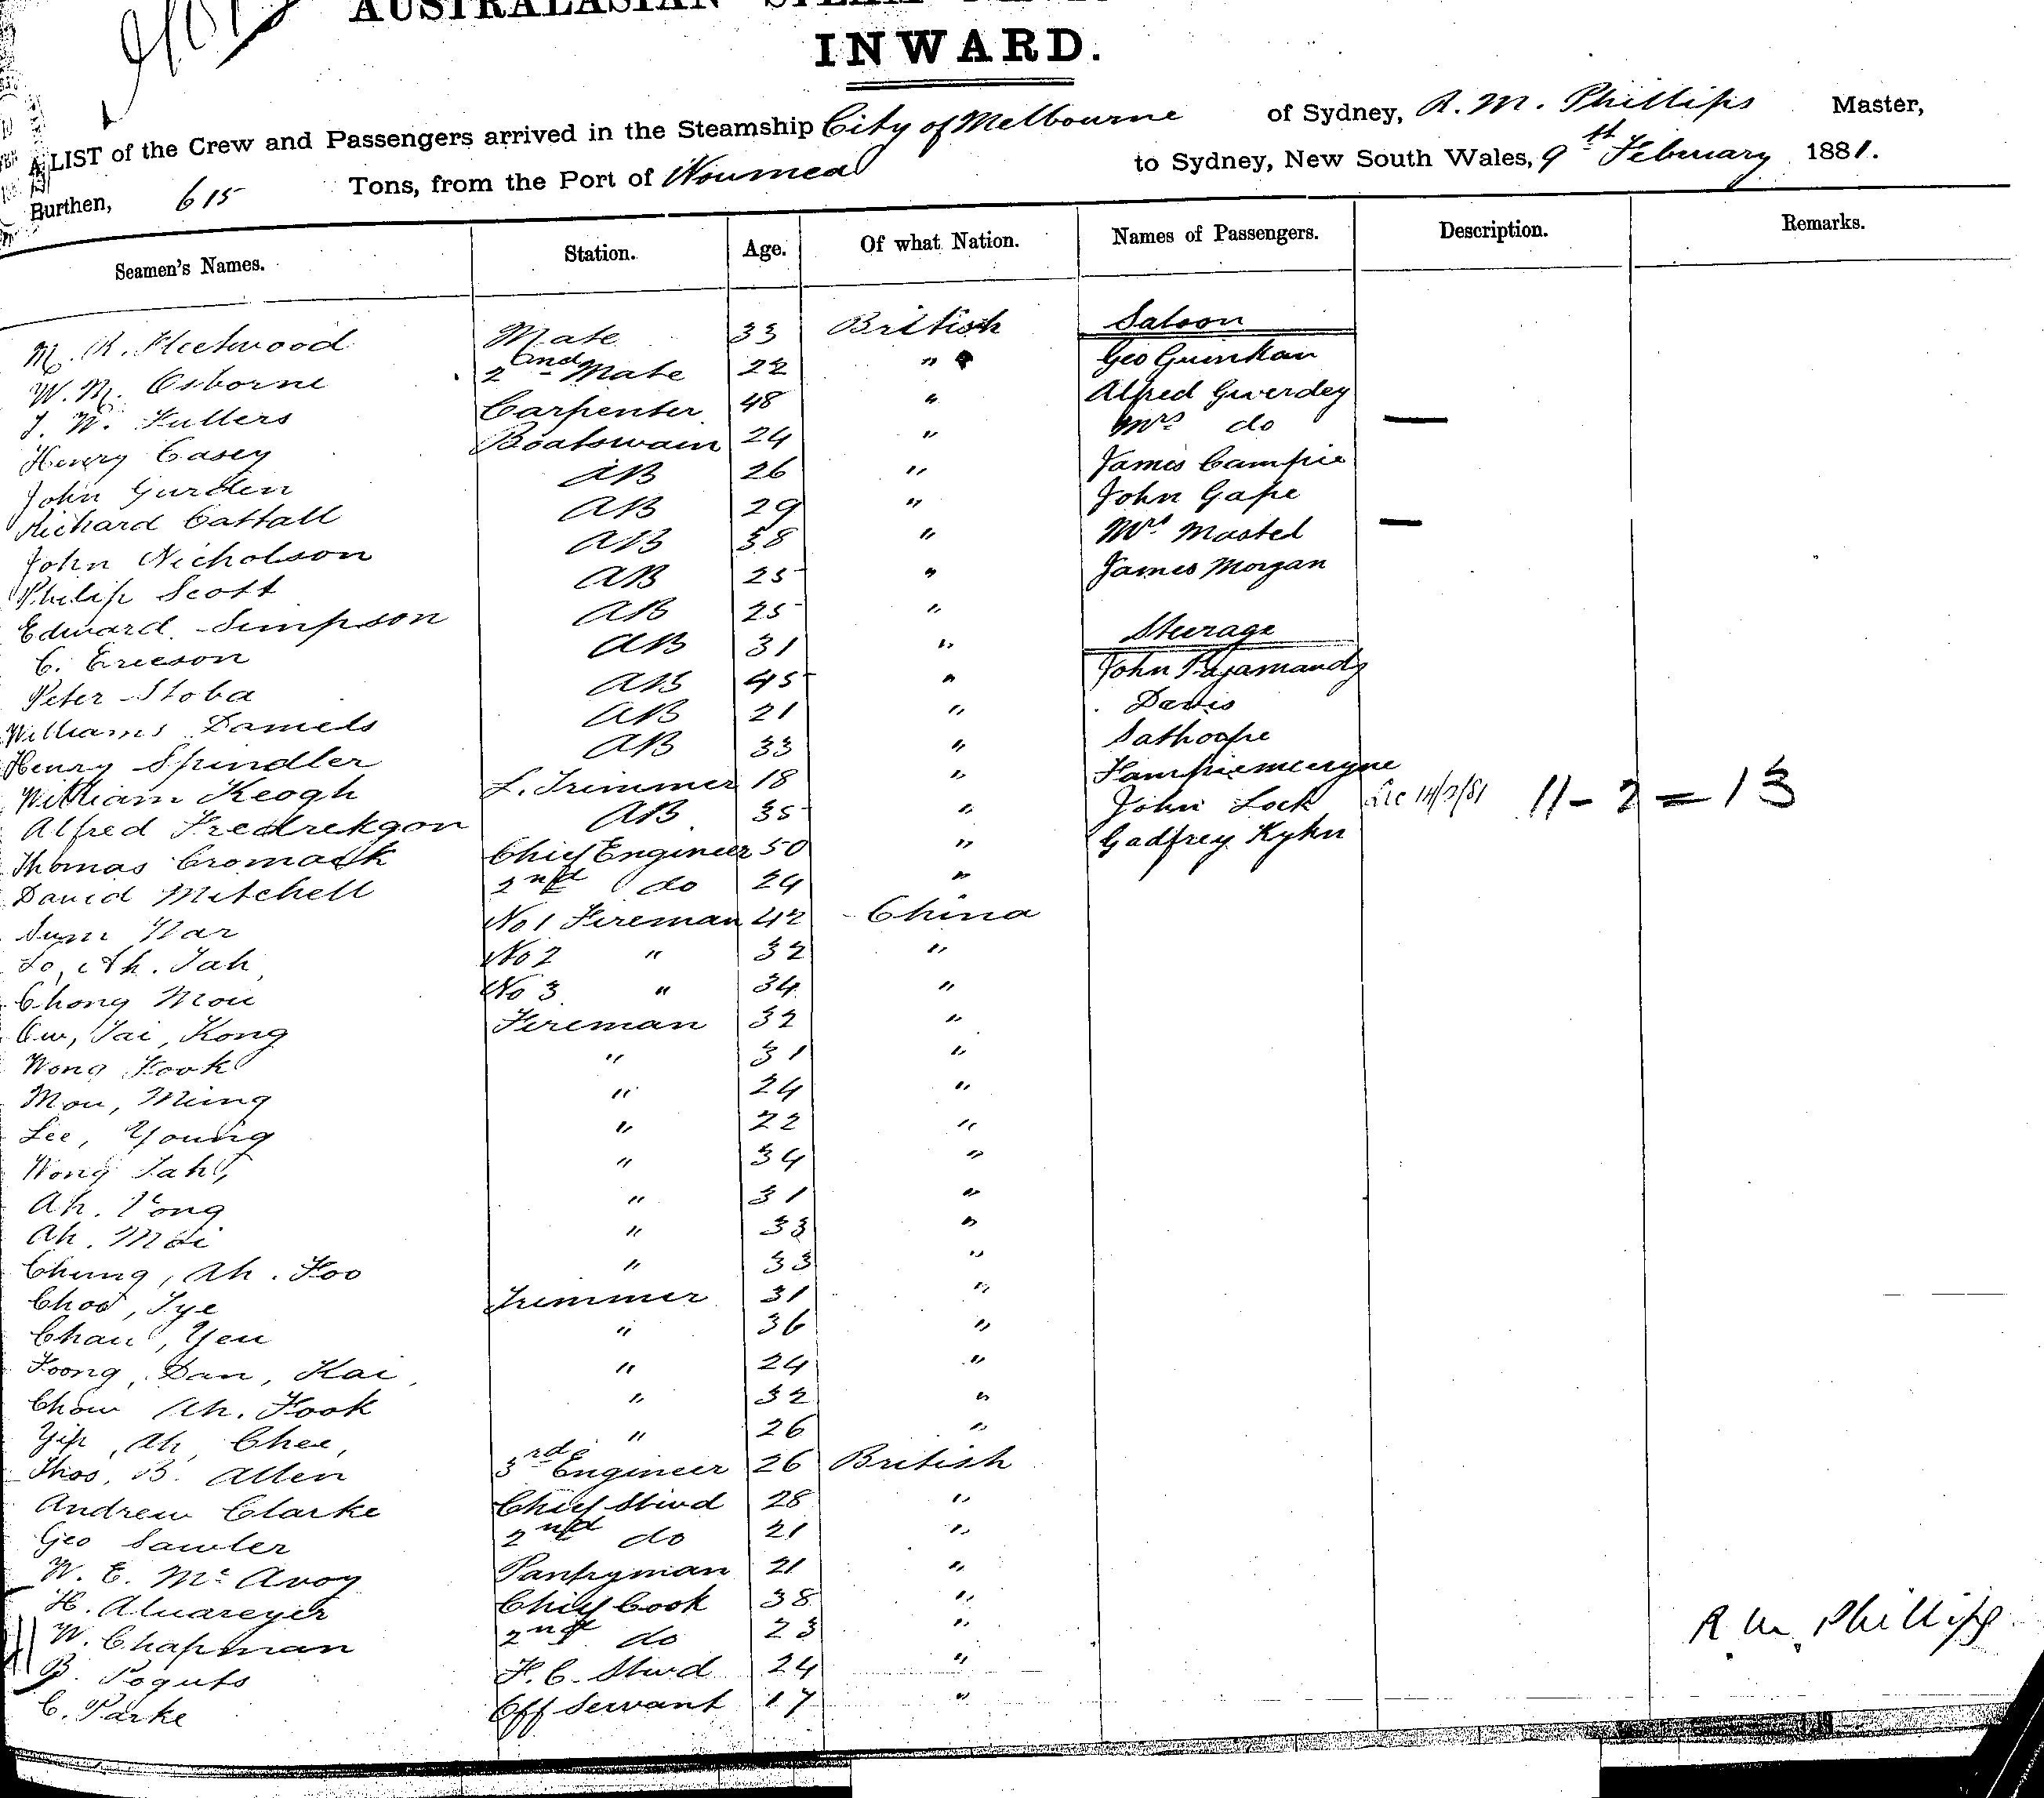 AUSTRALASIAN STEAM
INWARD.
A LIST of the Crew and Passengers arrived in the Steamship City of Melbourne of Sydney, R. M. Phillips Master,
Burthen, 615 Tons, from the Port of Noumea to Sydney, New South Wales, 9th February 1881.
Seamen's Names. Station. Age. Of what Nation. Names of Passengers. Description. Remarks.
Saloon
M. R. Fleetwood Mate 33 British Geo Guinkan
W. N. Osborne 2nd Mate 22 " Alfred Gwerdey
J. W. Fullers Carpenter 48 " Mrs do —
Henry Casey Boatswain 24 " James Campie
John Gurden AB 26 " John Gape
Richard Cattall AB 29 " Mrs Mastel —
John Nicholson AB 38 " James Morgan
Philip Scott AB 25 "
Edward Simpson AB 25 " Steerage
C. Ericson AB 31 " John
Peter Stoba AB 45 " Davis
Williams Daniels AB 21 " Sathorpe
Henry Spindler AB 33 "
William Keogh L. Trimmer 18 " John Lock 11 - 2 = 13
Alfred Fredrekson AB 35 " Gadfrey Kyhn
Thomas Cromack Chief Engineer 50 "
David Mitchell 2nd do 24 "
Sum War No 1 Fireman 42 China
Lo, Ah. Tah, No 2 " 32 "
Chong Mou No 3 " 34 "
Cw, Tai, Kong Fireman 32 "
Wong Fook " 31 "
Mou, Ming " 24 "
Lee, Young " 22 "
Wong Tah, " 34 "
Ah. Fong " 31 "
Ah. Moi " 33 "
Chung, Ah. Foo " 33 "
Choo, Tye Trimmer 31 "
Chan, Yeu " 36 "
Foong, Dan, Kai, " 24 "
Chow Ah. Fook " 32 "
Yip, Ah Chee, " 26 "
Thos. B. Allen 3rd Engineer 26 British
Andrew Clarke Chief Stwd 28 "
Geo Sawler 2nd do 21 "
W. E. McAvoy Pantryman 21 "
H. Aluareyer Chief Cook 38 "
W. Chapman 2nd do 23 "
B. Poguts F. C. Stwd 24 "
C. Parke Off Servant 17 "
R M Phillips